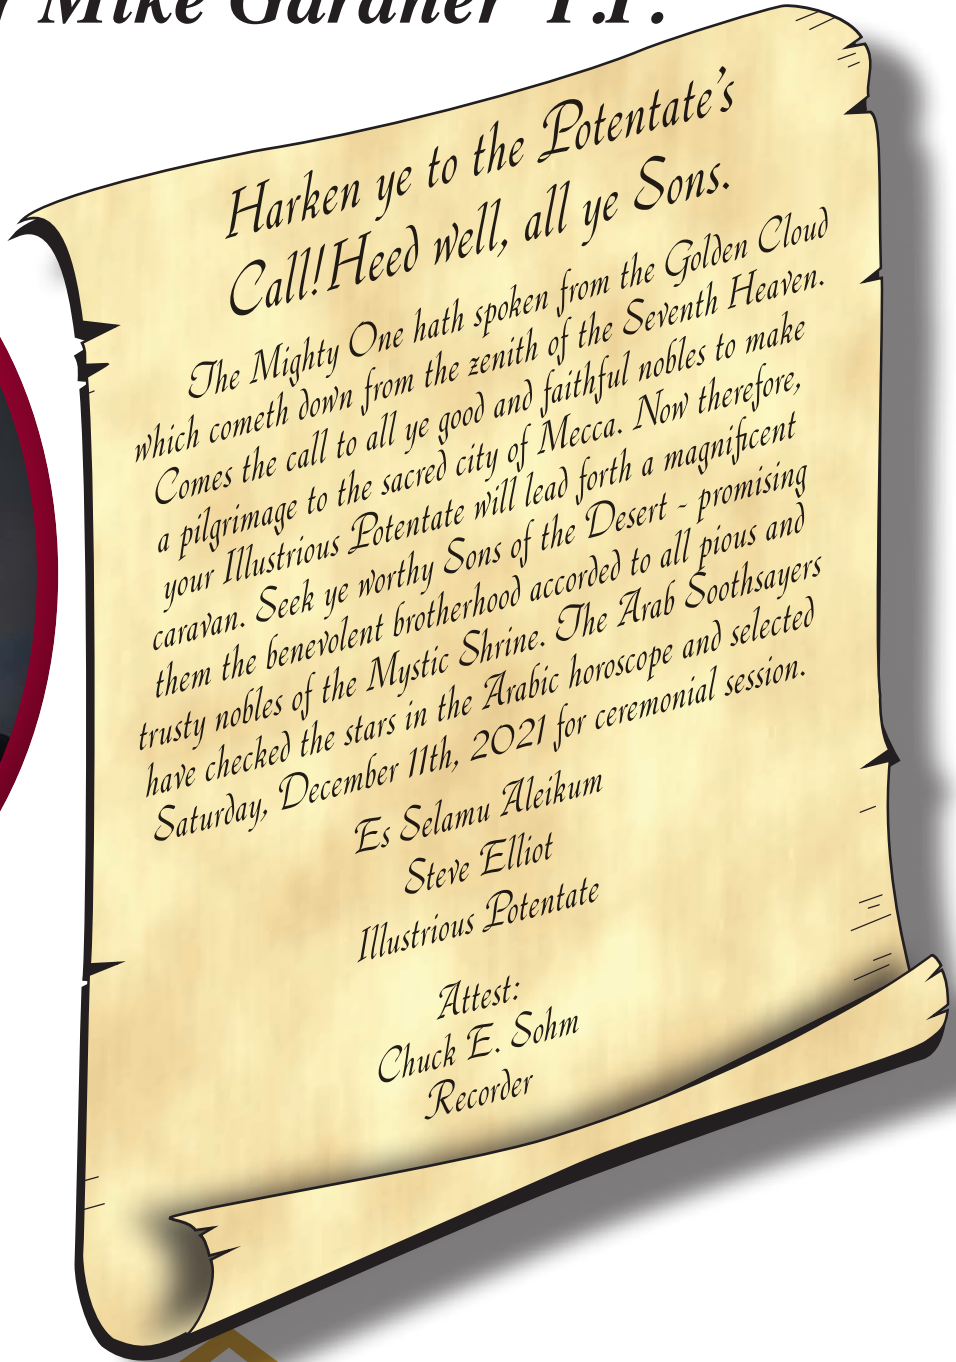 Mike Gardner P.P.
Harken ye to the Potentate's
Call!Heed well, all ye Sons.
The Mighty One hath spoken from the Golden Cloud
which cometh down from the zenith of the Seventh Heaven.
Comes the call to all ye good and faithful nobles to make
a pilgrimage to the sacred city of Mecca. Now therefore,
your Illustrious Potentate will lead forth a magnificent
caravan. Seek ye worthy Sons of the Desert - promising
them the benevolent brotherhood accorded to all pious and
trusty nobles of the Mystic Shrine. The Arab Soothsayers
have checked the stars in the Arabic horoscope and selected
Saturday, December 11th, 2021 for ceremonial session.
Es Selamu Aleikum
Steve Elliot
Illustrious Potentate
Attest:
Chuck E. Sohm
Recorder